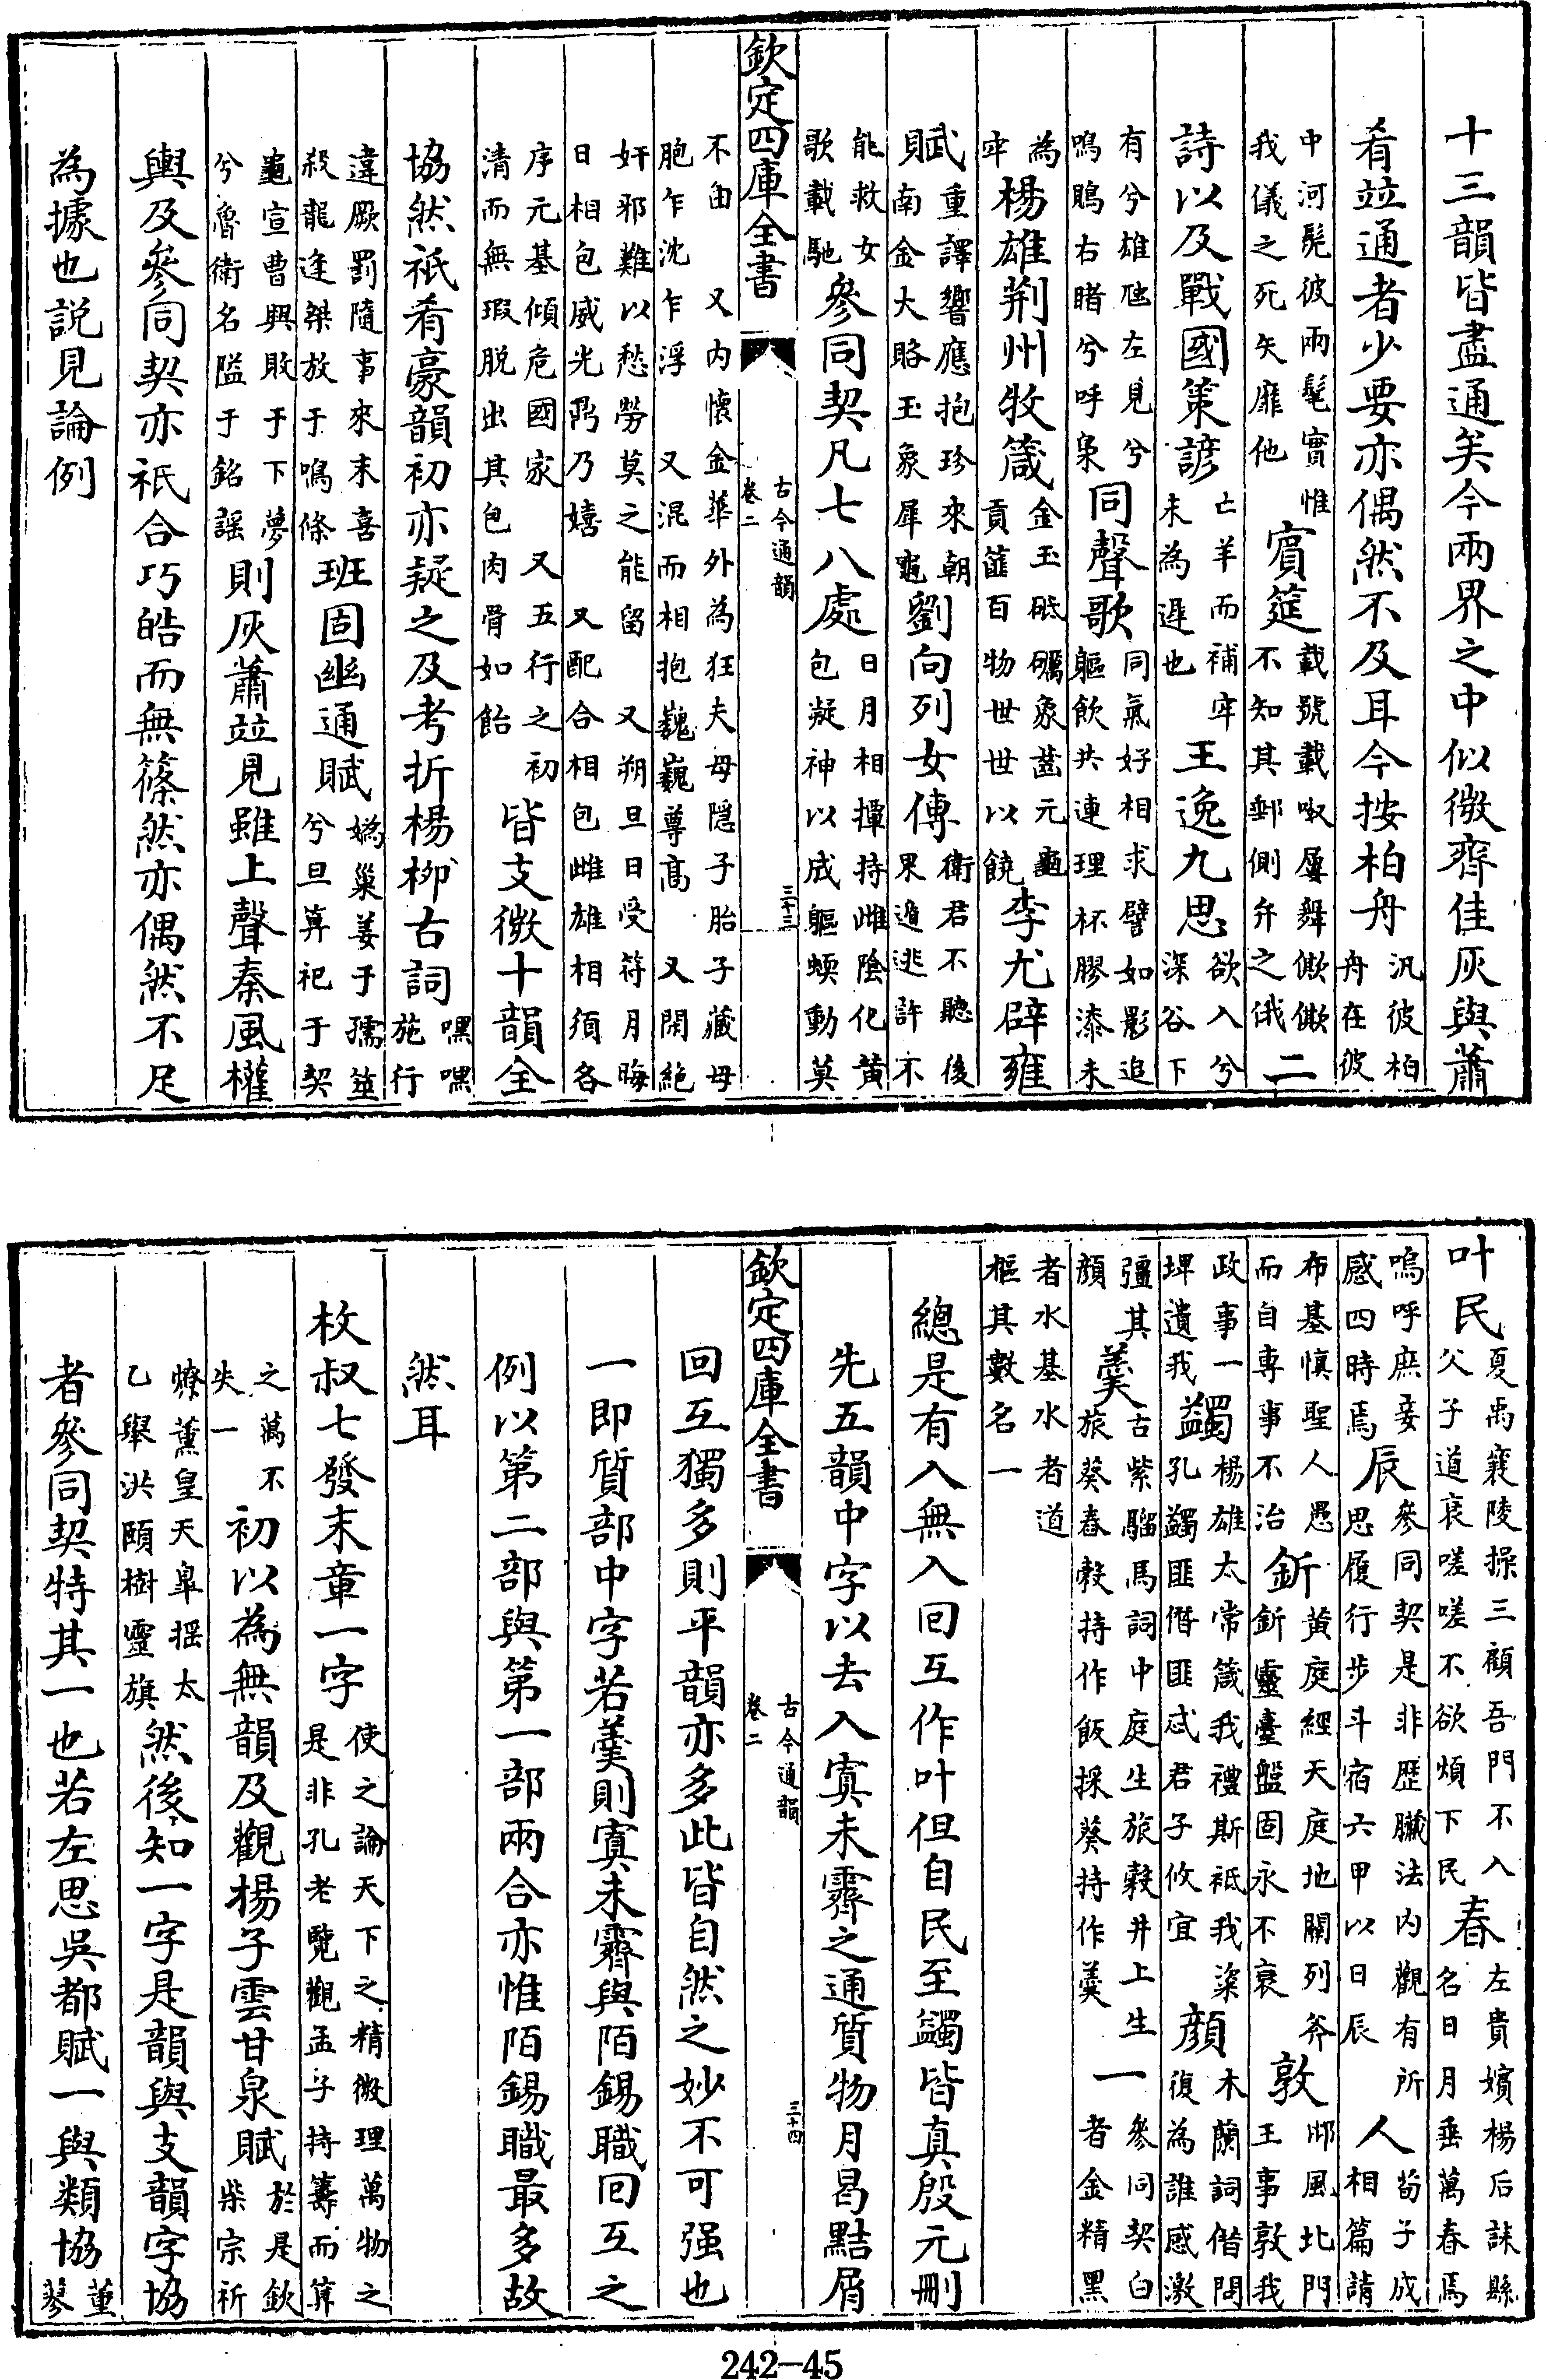 十三韻皆盡通矣今兩界之中似微齊佳灰與蕭
肴竝通者少要亦偶然不及耳今按柏舟汎彼柏舟在彼
中河髧彼兩髦實惟我儀之死矢靡他賓筵載號載呶屢舞僛僛不知其郵側弁之俄二
詩以及戰國策諺亡羊而補牢未為遲也王逸九思欲入兮深谷下
有兮雄虺左見兮鳴鵙右睹兮呼梟同聲歌同氣好相求譬如影追軀飲共連理杯膠漆未
為牢楊雄荆州牧箴金玉砥礪象齒元龜貢篚百物世世以饒李尤辟雍
賦重譯響應抱珍來朝南金大賂玉象犀龜劉向列女傳衛君不聽後果遁逃許不
能救女歌載馳參同契凡七八處日月相撢持雌陰化黃包凝神以成軀蝡動莫
欽定四庫全書 古今通韻 卷二 三十三
不由 又内懷金華外為狂夫母隠子胎子藏母胞乍沈乍浮 又混而相抱巍巍尊高 又閉絶
奸邪難以愁勞莫之能留 又朔旦日受符月晦日相包威光鼎乃嬉 又配合相包雌雄相須各
序元基傾危國家 又五行之初清而無瑕脱出其包肉骨如飴皆支微十韻全
協然祇肴豪韻初亦疑之及考折楊柳古詞嘿嘿施行
違厥罰隨事來末喜殺龍逢桀放于鳴條班固幽通賦媯巢姜于孺筮兮旦筭祀于契
龜宣曹興敗于下夢兮魯衛名諡于銘謡則灰蕭竝見雖上聲秦風權
輿及參同契亦祇合巧皓而無篠然亦偶然不足
為據也説見論例
叶民夏禹襄陵操三顧吾門不入父子道衰嗟嗟不欲煩下民春左貴嬪楊后誄縣名日月垂萬春焉
嗚呼庶妾感四時焉辰參同契是非歷臟法内觀有所思履行步斗宿六甲以日辰人荀子成相篇請
布基慎聖人愚而自專事不治釿黃庭經天庭地關列斧釿靈臺盤固永不衰敦邶風北門王事敦我
政事一埤遺我蠲楊雄太常箴我禮斯祇我粢孔蠲匪僭匪忒君子攸宜顔木蘭詞借問復為誰感激
彊其顔羹古紫騮馬詞中庭生旅穀井上生旅葵舂穀持作飯採葵持作羹一參同契白者金精黑
者水基水者道樞其數名一
總是有入無入回互作叶但自民至蠲皆真殷元刪
先五韻中字以去入寘未霽之通質物月曷黠屑
欽定四庫全書 古今通韻 卷二 三十四
回互獨多則平韻亦多此皆自然之妙不可强也
一即質部中字若羹則寘未霽與陌錫職回互之
例以第二部與第一部兩合亦惟陌錫職最多故
然耳
枚叔七發末章一字使之論天下之精微理萬物之是非孔老覽觀孟子持籌而筭
之萬不失一初以為無韻及觀楊子雲甘泉賦於是欽柴宗祈
燎薰皇天臯揺太乙舉洪頤樹靈旗然後知一字是韻與支韻字協
者參同契特其一也若左思吳都賦一與類協蕫蓼
242-45